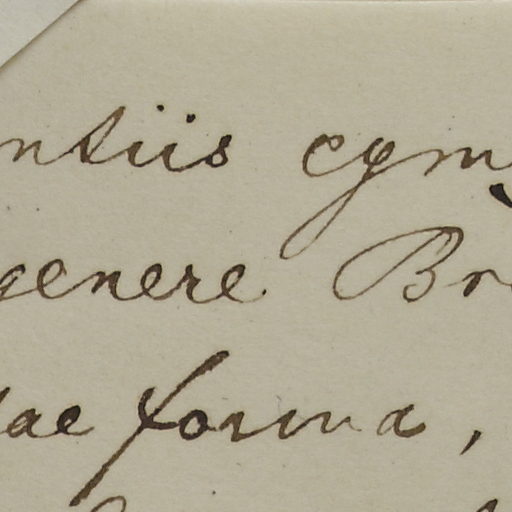 ntiis cym
genere Br
ae forma,